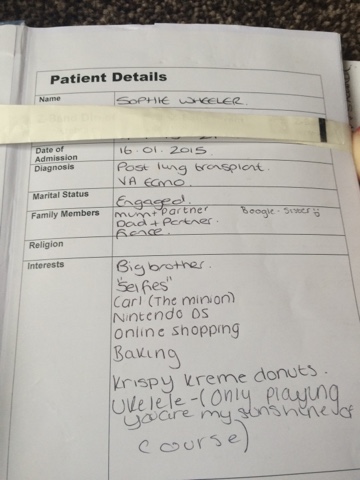 Patient Details
Name SOPHIE WHEELER.
Date of
Admission 16.01.2015
Diagnosis Post lung transplant.
VA ECMO.
Marital Status Engaged.
Family Members mum+partner Boogie-Sister
Dad + Partner.
fiance.
Religion
Interests Big brother.
"selfies"
Carl (The minion)
Nintendo DS
Online shopping
Baking
Krispy kreme donuts.
Ukelele-(only playing
you are my sunshine of
course)